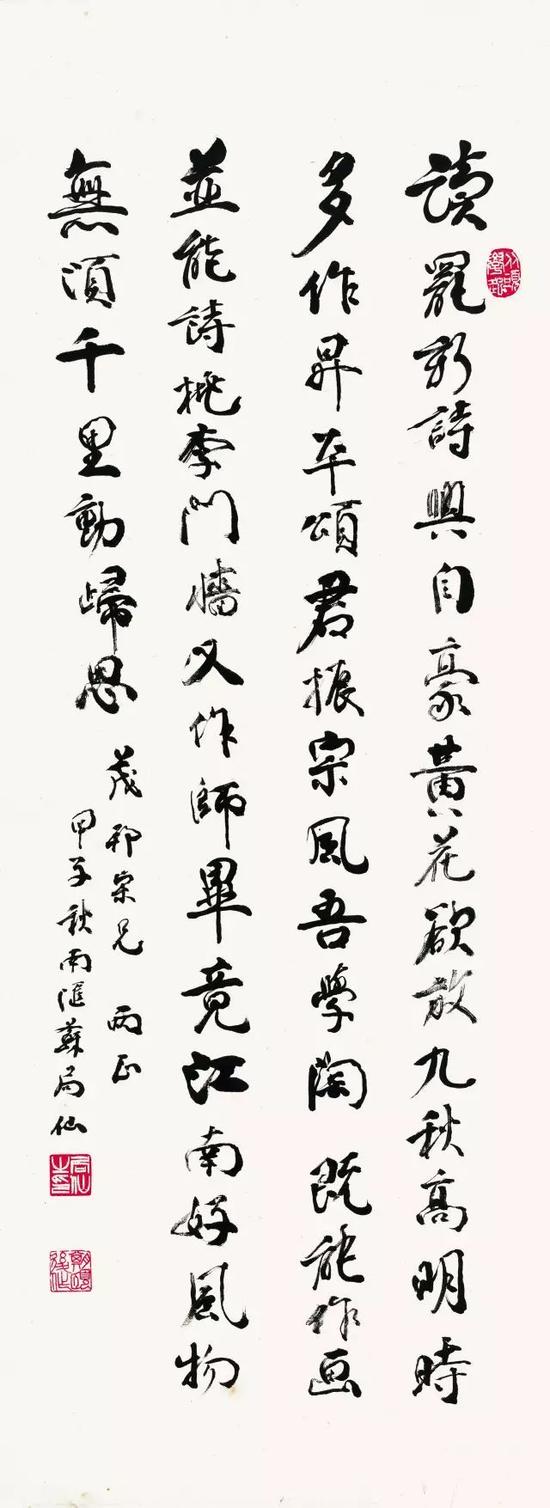 讀罷新詩興自豪黃花欲放九秋高明時
多作昇平頌君振宗風吾學陶既能作画
並能詩桃李門牆又作師畢竟江南好風物
無須千里動歸思
茂邦宗兄 两正
甲子秋南匯蘇局仙